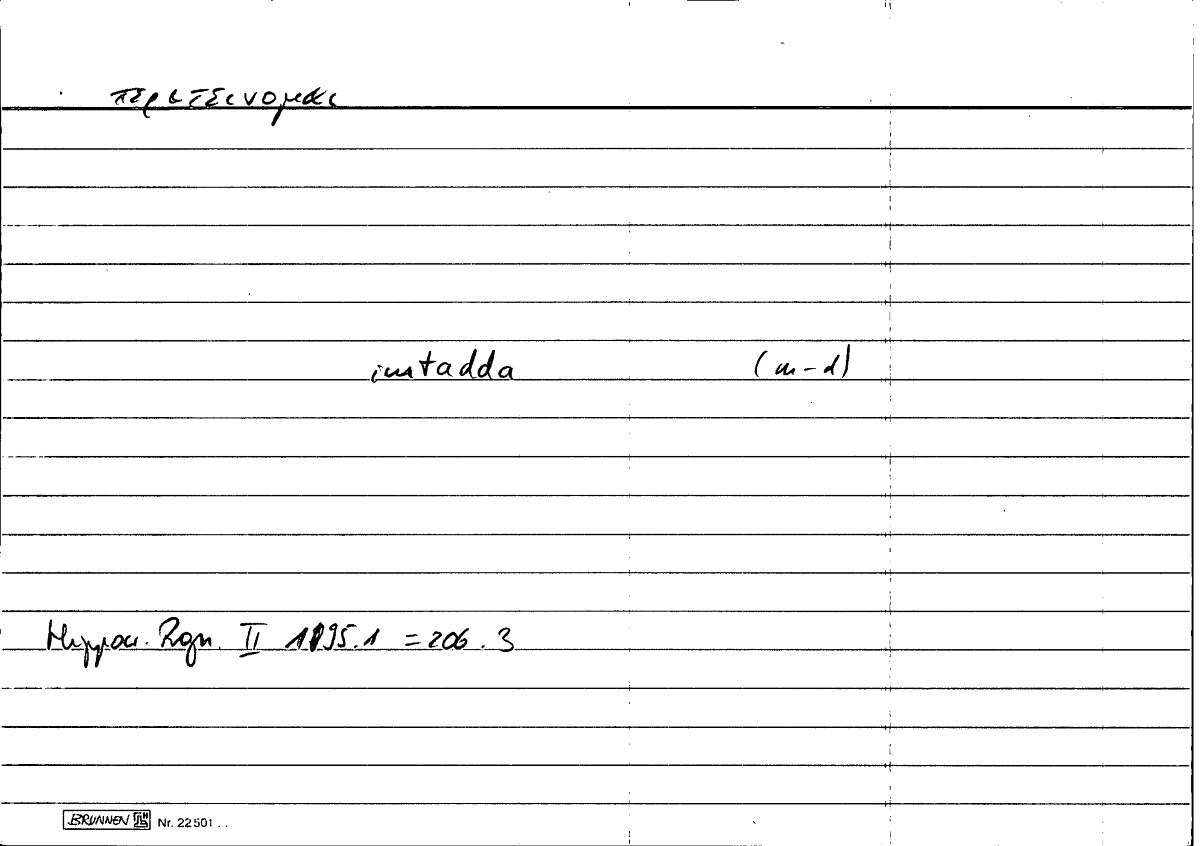 περιτεινομαι
imtadda (m-d)
Hippocr. Rgn. II 195.1 = 206.3
BRUNNEN Nr. 22501